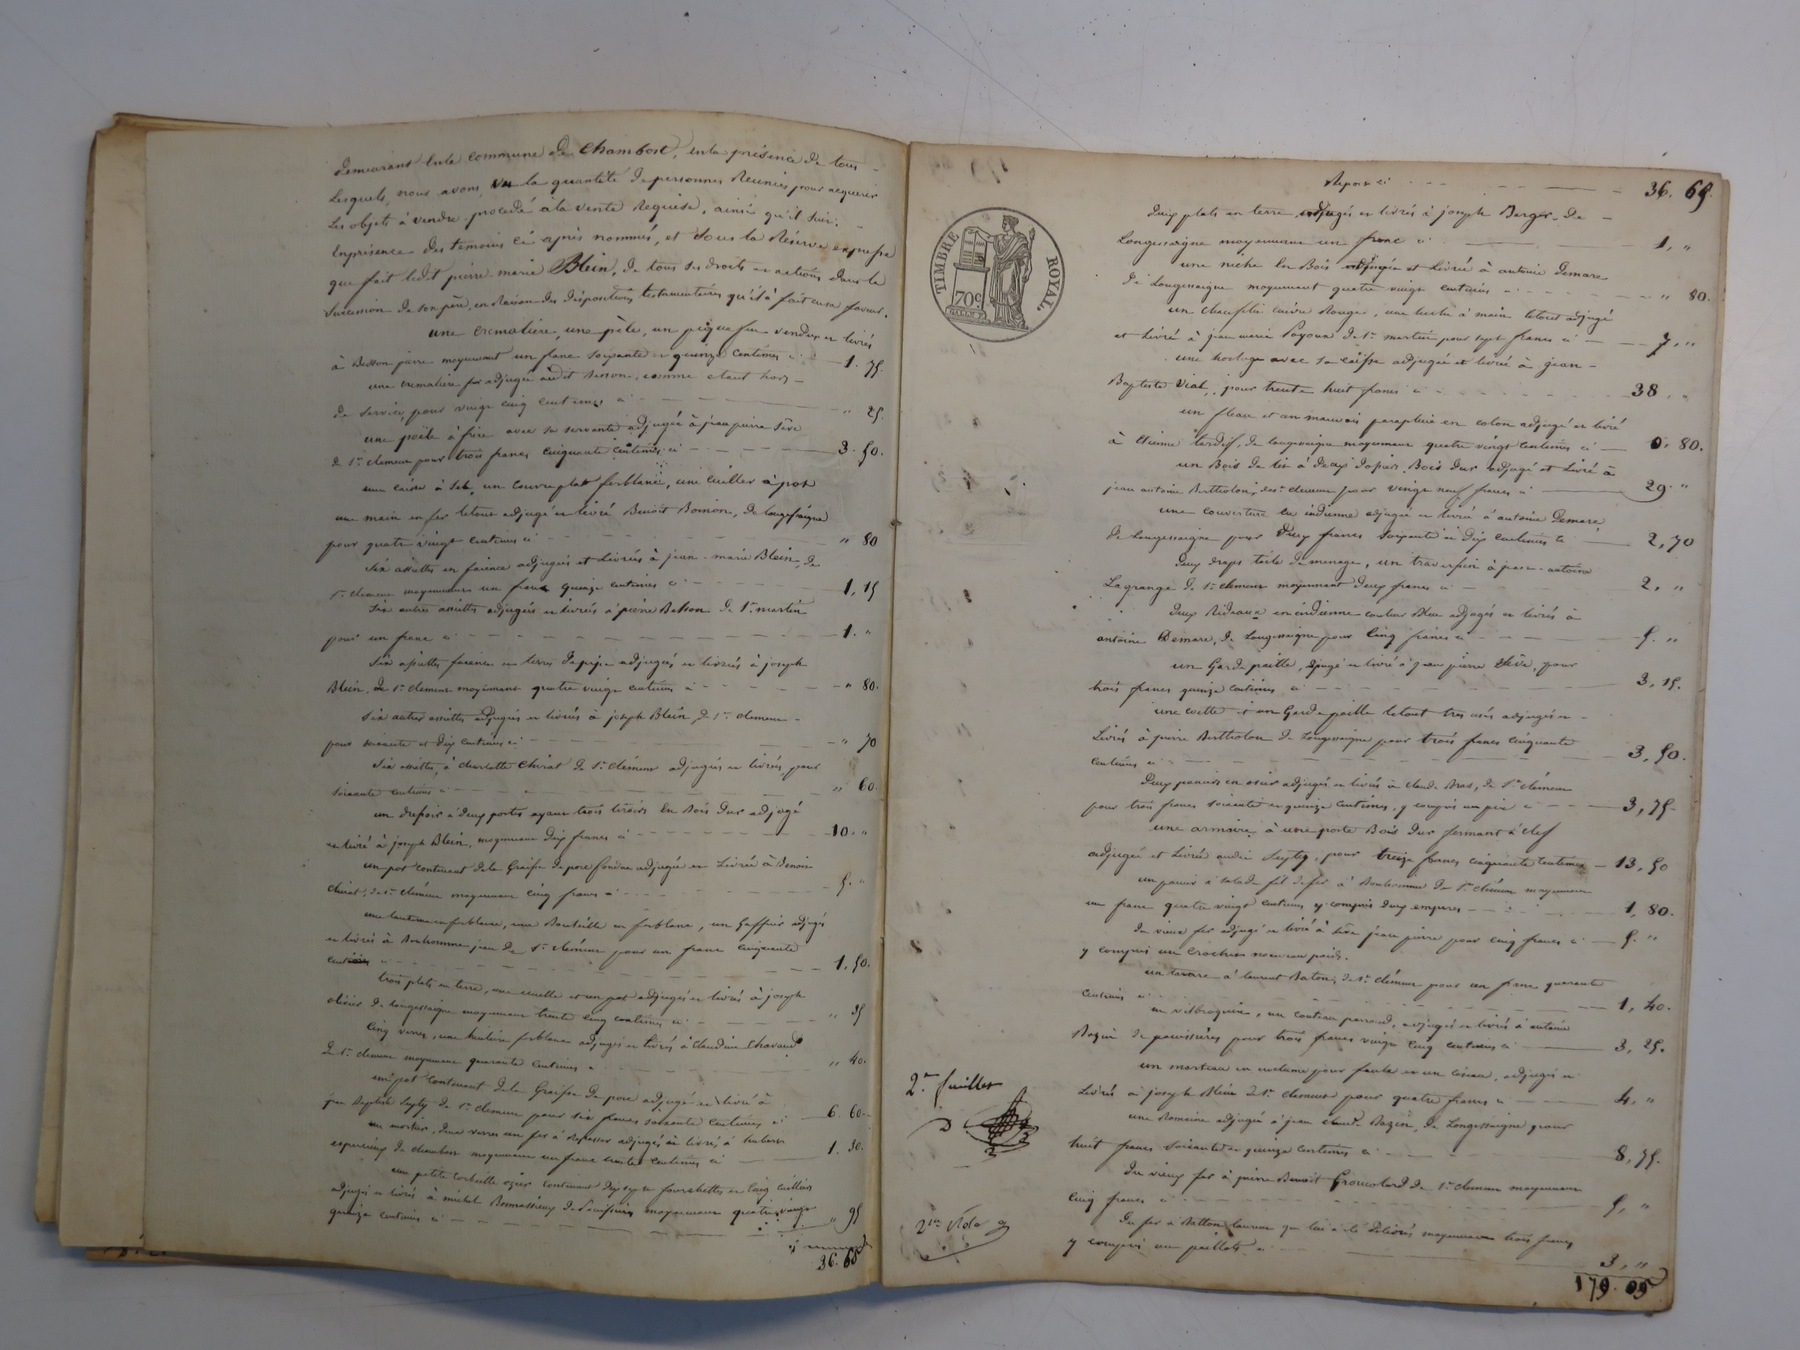 demeurant en la commune de Chambost, en la présence de tous
Lesquels, nous avons vu la quantité de personnes Reunies pour acquerir
Les objets à vendre procedé à la vente Requise, ainsi qu'il suit:
En présence des temoins ci après nommés, et sous la Réserve expresse
que fait ledit pierre marie Blein, de tous ses droits et actions dans la
succession de son père, en Raison des dispositions testamentaires qu'il a fait en sa faveur.
une cremaliere, une pèle, un pique feu vendus et livrés
à Besson pierre moyennant un franc soixante et quinze centimes ci 1. 75.
une cremaliere fer adjugée audit Besson, comme etant hors
de service, pour vingt cinq centimes ci " 25.
une poële à frire avec sa servante adjugée à jean pierre Sève
de St. clement pour trois francs cinquante centimes ci 3. 50.
une caisse à Sel, un couvreplat ferblanc, une cuiller à pot
une main en fer letout adjugé et livré Benoit Boinon, de longessaigne
pour quatre vingt centimes ci " 80
Six assiettes en faïence adjugées et Livrées à jean-marie Blein, de
St. clement moyennant un franc quinze centimes ci 1, 15
Six autres assiettes adjugées et livrés à pierre Besson de St. martin
pour un franc ci 1. "
Six assiettes faïence en terre de pipe adjugées et livrées à joseph
Blein, de St. clement moyennant quatre vingt centimes ci " 80.
Six autres assiettes adjugées et livrés à joseph Blein, de St. clement
pour soixante et dix centimes ci " 70
Six assiettes, à charlotte Chirat de St. clément adjugées et livrées, pour
soixante centimes ci " 60.
un dressoir à deux portes ayant trois tiroirs en Bois dur adjugé
et livré à joseph Blein, moyennant dix francs ci 10. "
un pot contenant de la Graisse de porc fondue adjugée et Livrée à Benoit
Chirat, de St. clément moyennant cinq francs ci 5. "
une lanterne en ferblanc, une Bouteille en ferblanc, un adjugés
et livrés à Bonhomme jean de St. clément pour un franc cinquante
centimes ci 1. 50.
trois plats en terre, une ecuelle et un pot adjugés et livrés à joseph
olivier de longessaigne moyennant trente cinq centimes ci " 35
Cinq verres, une ferblanc adjugés et livrés à Claudine Chavand
de St. clement moyennant quarante centimes ci " 40.
un pot contenant de la Graisse de porc adjugé et livré à
jean Baptiste Sixty de St. clement pour six francs soixante centimes ci 6. 60.
un mortier, deux verres un fer à Repasser adjugés et livrés à
de chambost moyennant un franc trente centimes ci 1. 30.
une petite corbeille ozier contenant dix sept fourchettes et cinq cuillers
adjugés et livrés à michel moyennant quatre vingt
quinze centimes ci " 95
36. 65
Report ci 36. 65.
TIMBRE ROYAL
70c.
deux plats en terre adjugés et livrés à joseph Berger de
Longessaigne moyennant un franc ci 1, "
une niche en Bois adjugée et Livrée à antoine Demare
de Longessaigne moyennant quatre vingt centimes ci " 80.
un chauffelit cuivre Rouge, une hache à main letout adjugé
et livré à jean marie Payoux de St. martin pour sept francs ci 7, "
une horloge avec sa caisse adjugée et livrée à jean
Baptiste Vial, pour trente huit francs ci 38, "
un fleau et un mauvais parapluie en coton adjugé et livré
à Etienne tardif, de longessaigne moyennant quatre vingt centimes ci 0. 80.
un Bois de lit à deux dossiers Bois dur adjugé et Livré à
jean antoine Bertholon, de St. clement pour vingt neuf francs ci 29. "
une couverture en indienne adjugée et livrée à antoine Demare
de longessaigne pour deux francs soixante et dix centimes ci 2, 70
deux draps toile de menage, un traversin à jean-antoine
Lagrange de St. clement moyennant deux francs ci 2, "
deux Rideaux en indienne couleur bleue adjugés et livrés à
antoine Demare, de Longessaigne pour Cinq francs ci 5. "
un Garde paille, adjugé et livré à jean pierre Sève, pour
trois francs quinze centimes ci 3, 15.
une coette et un Garde paille letout tres usés adjugés et
Livrés à pierre Bertholon de Longessaigne pour trois francs cinquante
centimes ci 3, 50.
deux paniers en osier adjugés et livrés à claude Bras, de St. clément
pour trois francs soixante et quinze centimes, y compris un pic ci 3, 75.
une armoire à une porte Bois dur fermant à clef
adjugée et Livrée audit Sixty, pour treize francs cinquante centimes 13, 50
un panier à salade fil de fer à Bonhomme de St. clément moyennant
un franc quatre vingt centimes y compris deux 1, 80.
du vieux fer adjugé et livré à Sève jean pierre pour cinq francs ci 5. "
y compris un Crochet nouveau poids.
un à laurent Baton, de St. clément pour un franc quarante
centimes ci 1, 40.
un vilbroquin, un couteau adjugés et livrés à antoine
Bazin de poussières pour trois francs vingt cinq centimes ci 3, 25.
un marteau un enclume pour faulx et un ciseau, adjugés et
Livrés à joseph Blein de St. clement pour quatre francs ci 4, "
une Romaine adjugée à jean claude Bazin, de Longessaigne pour
huit francs soixante et quinze centimes ci 8, 75.
du vieux fer à pierre Benoit de St. clement moyennant
cinq francs ci 5, "
du fer à Batton laurent qui lui a été Délivrés moyennant trois francs
y compris un ci 3, "
179. 05
2e. feuillet